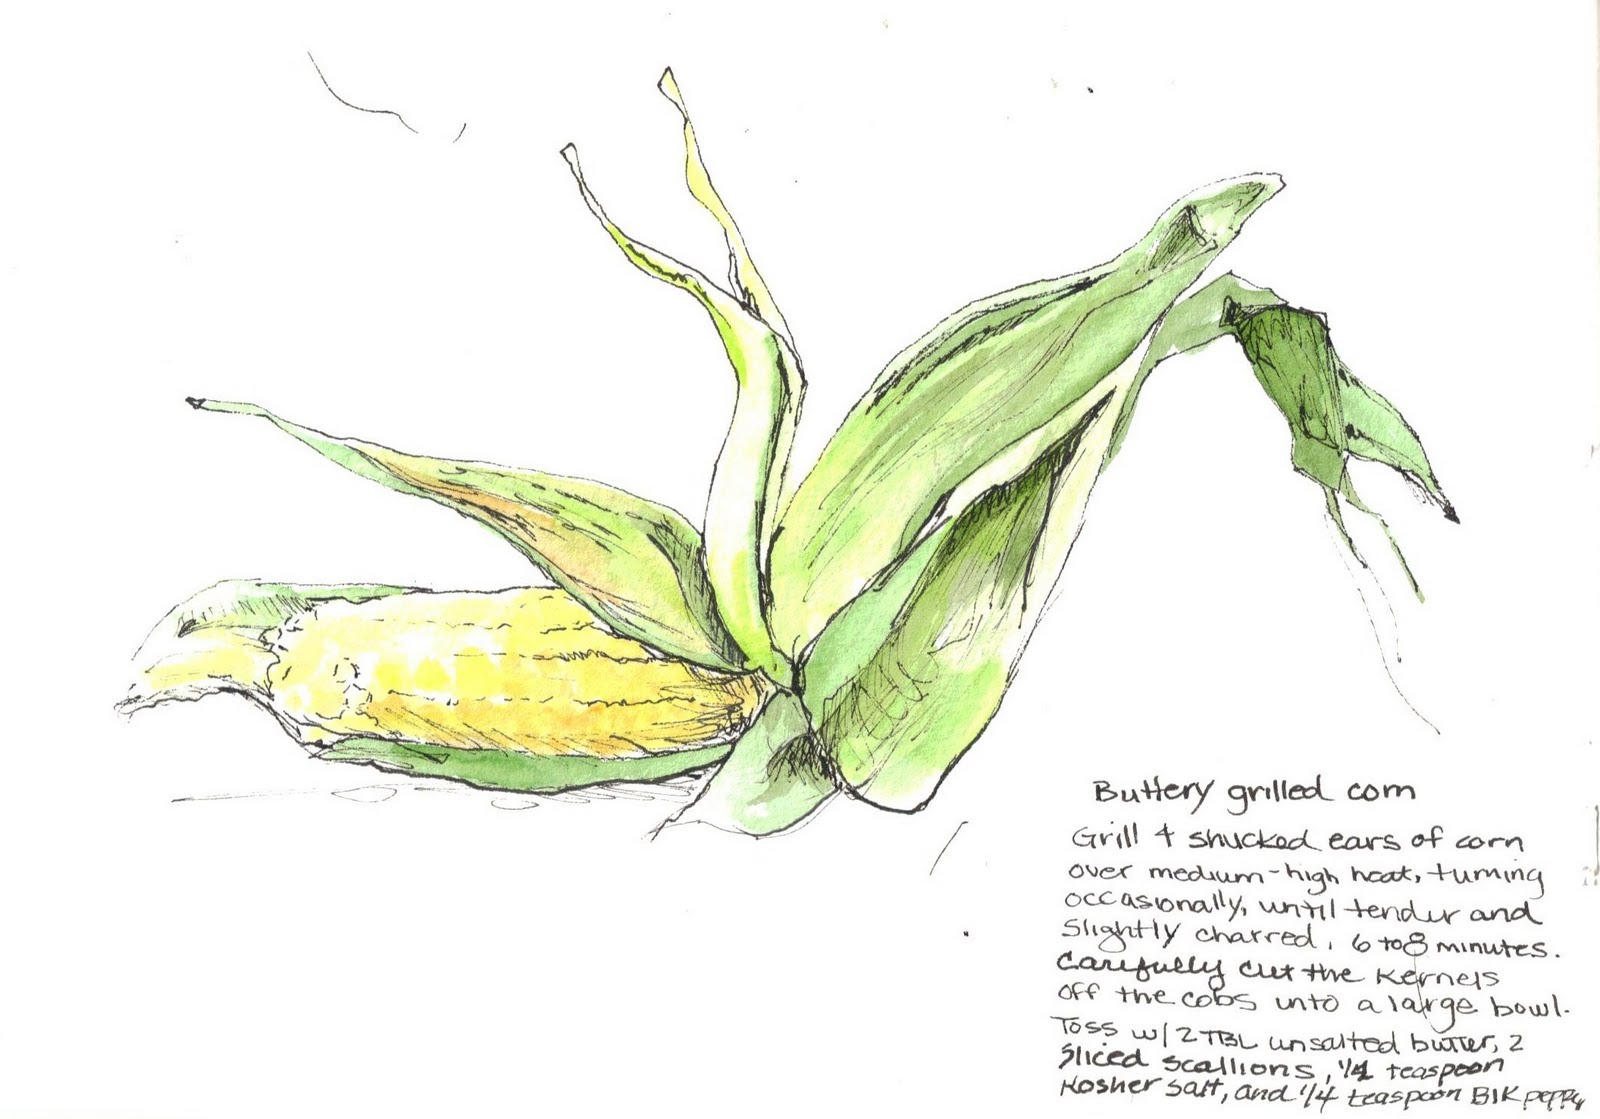 Buttery grilled corn
Grill 4 shucked ears of corn
over medium-high heat, turning
occasionally, until tender and
slightly charred, 6 to 8 minutes.
Carefully cut the kernels
off the cobs into a large bowl.
Toss w/ 2 TBL unsalted butter, 2
sliced scallions, 1/4 teaspoon
Kosher salt, and 1/4 teaspoon Blk peppr